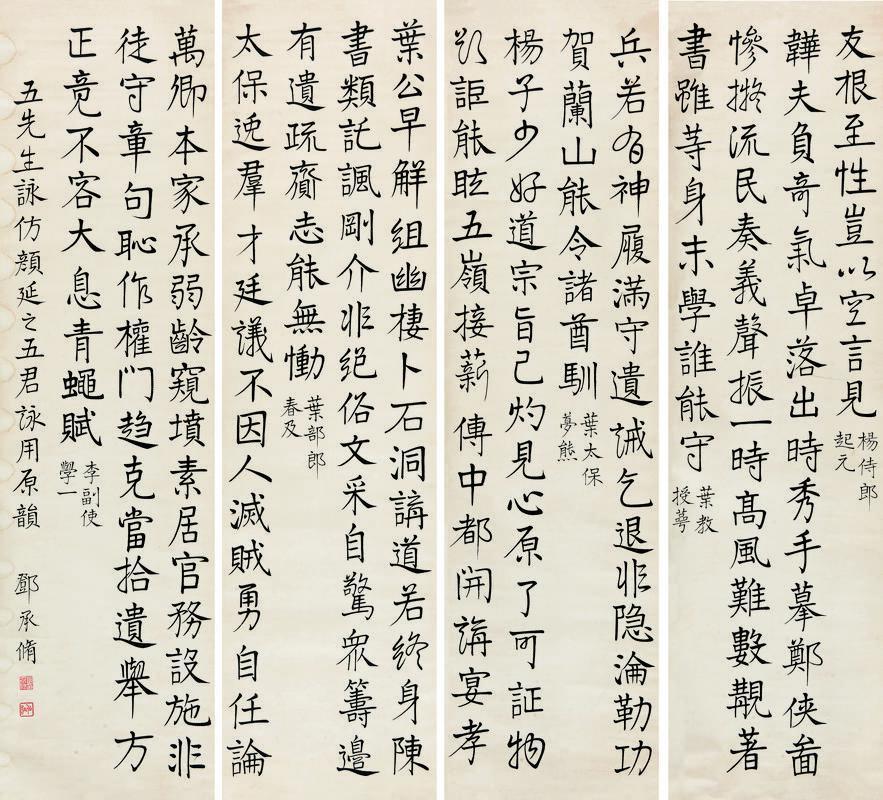 友根至性豈以空言見 楊侍郎起元
韡夫負奇氣卓落出時秀手摹鄭俠啚
慘擬流民奏義聲振一時高風難數覯著
書雖等身末學誰能守 葉教授萼
兵若有神履滿守遺誡乞退非隱淪勒功
賀蘭山能令諸酋馴 葉太保夢熊
楊子少好道宗旨己灼見心原了可証物
欺詎能眩五嶺接薪傳中都開講宴孝
葉公早解組幽棲卜石洞講道若終身陳
書類託諷剛介非絕俗文采自驚眾籌邊
有遺疏齎志能無慟 葉部郎春及
太保逸羣才廷議不因人滅賊勇自任論
萬卿本家承弱齡窺墳素居官務設施非
徒守章句恥作權門趨克當拾遺舉方
正竟不容大息青蠅賦 李副使學一
五先生詠仿顏延之五君詠用原韻 鄧承脩